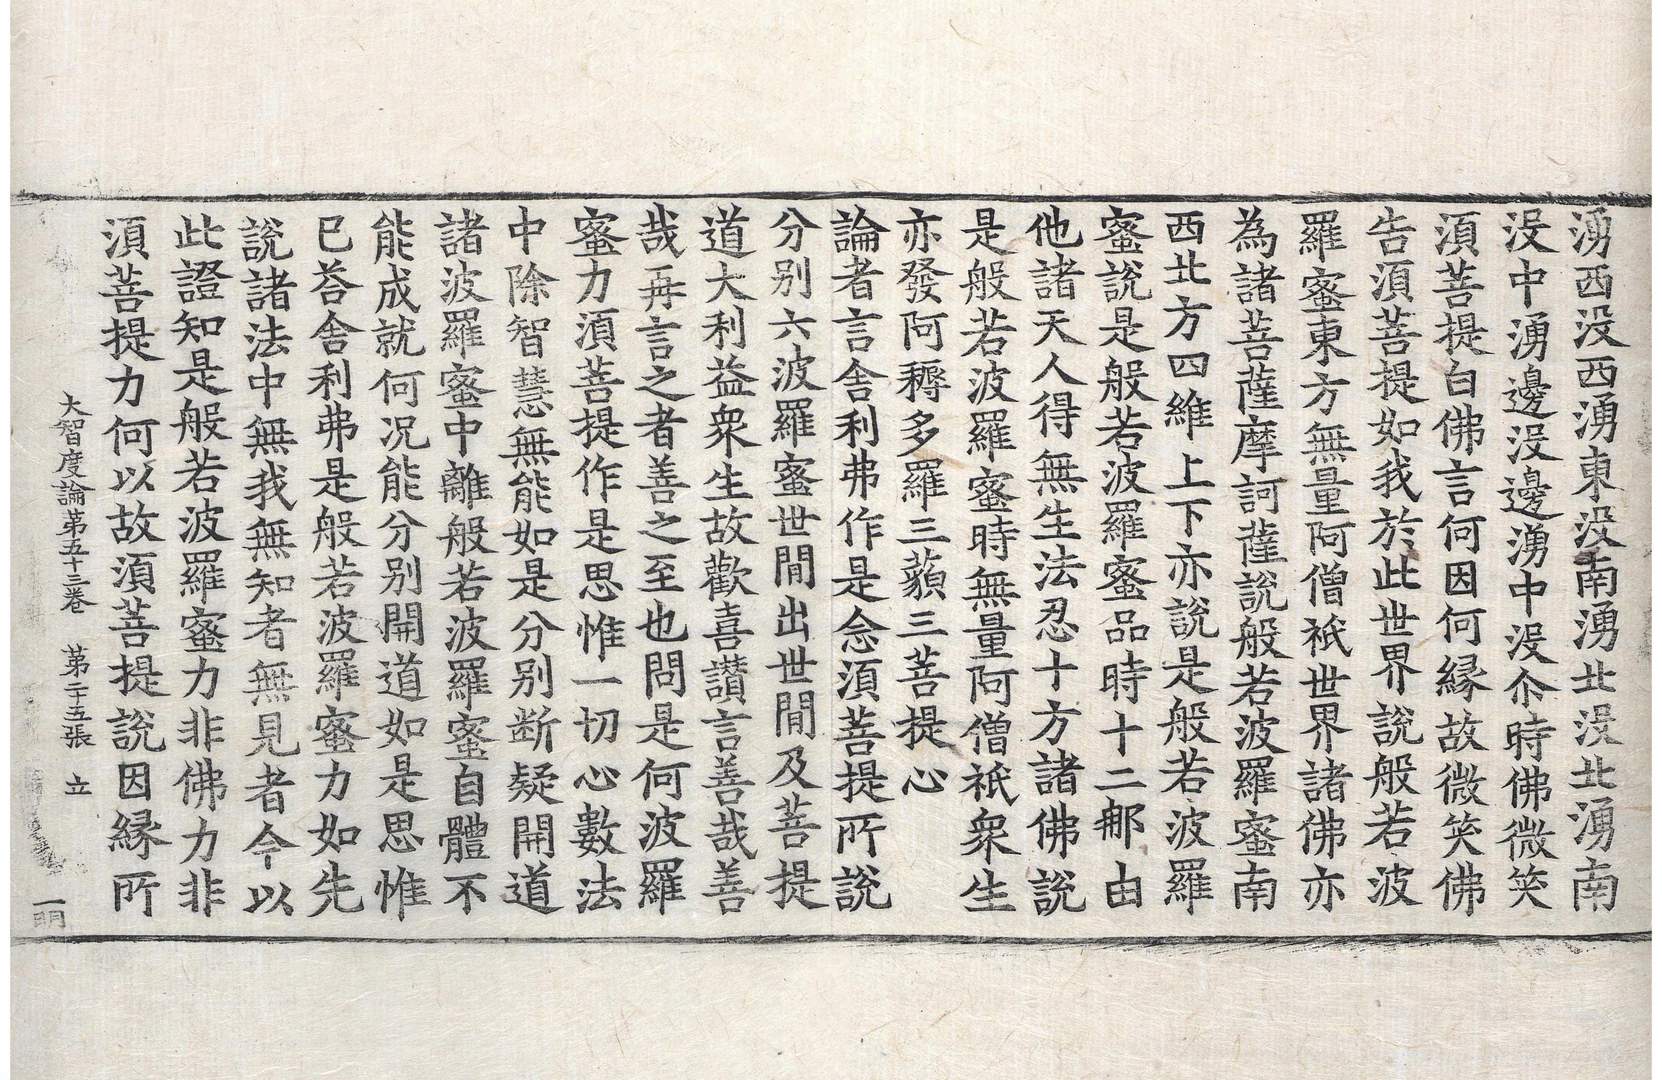 湧西没西湧東没南湧北没北湧南
没中湧邊没邊湧中没尒時佛微笑
湏菩提白佛言何因何緣故微笑佛
告湏菩提如我於此世界說般若波
羅蜜東方無量阿僧祇世界諸佛亦
為諸菩薩摩訶薩說般若波羅蜜南
西北方四維上下亦說是般若波羅
蜜說是般若波羅蜜品時十二那由
他諸天人得無生法忍十方諸佛說
是般若波羅蜜時無量阿僧祇衆生
亦發阿耨多羅三藐三菩提心
論者言舍利弗作是念湏菩提所說
分別六波羅蜜世間出世間及菩提
道大利益衆生故歡喜讃言善哉善
哉再言之者善之至也問是何波羅
蜜力湏菩提作是思惟一切心數法
中除智慧無能如是分別断疑開道
諸波羅蜜中離般若波羅蜜自體不
能成就何况能分別開道如是思惟
已荅舍利弗是般若波羅蜜力如先
說諸法中無我無知者無見者今以
此證知是般若波羅蜜力非佛力非
湏菩提力何以故湏菩提說因緣所
大智度論第五十三卷 第二十五張 立